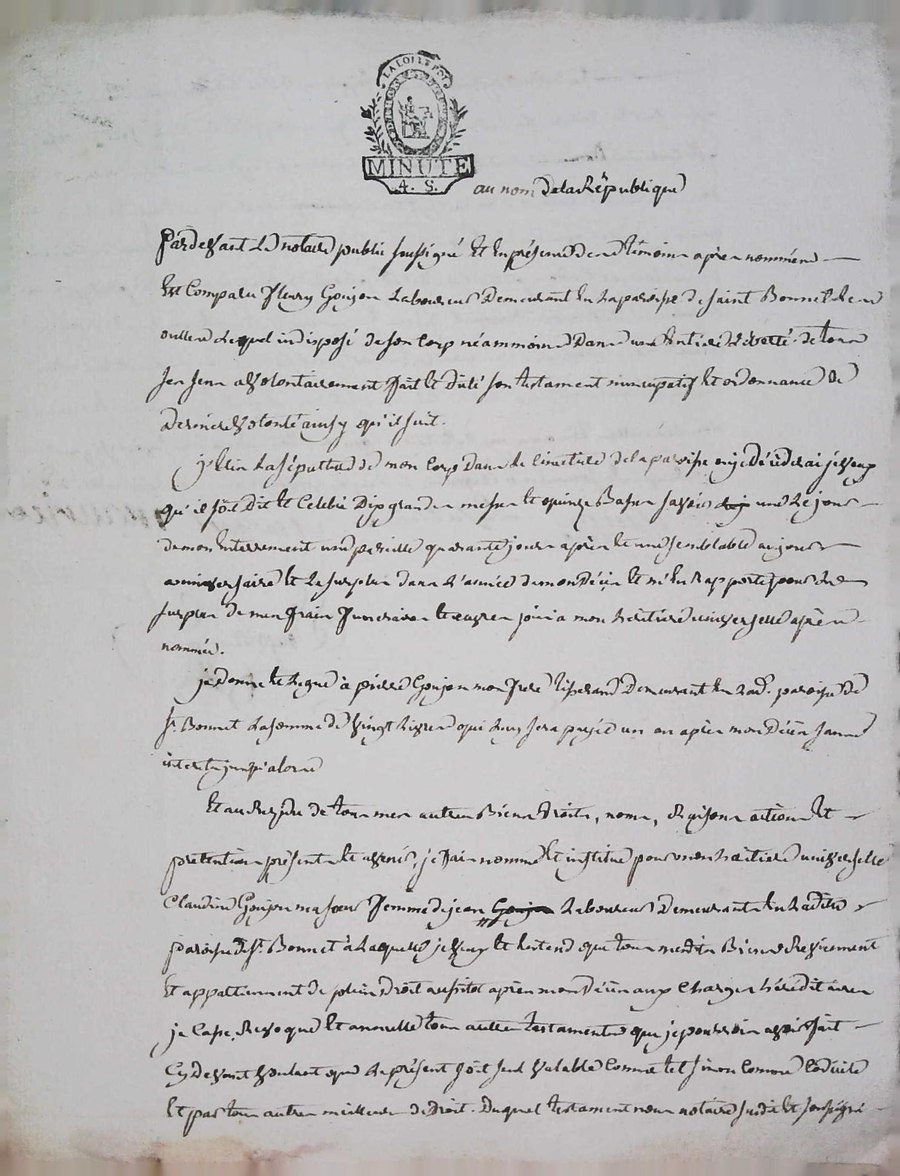 LA LOI LE ROI
MINUTE
4. S.
au nom de la République
Pardevant Le notaire public soussigné Et En présence des témoins après nommés
Est Comparu fleury Goujon Laboureur Demeurant En La paroisse de Saint Bonnet Les
oulles Lequel indisposé de son Corps néammoins Dans une Entiere Liberté de tous
ses sens a volontairement fait et dicté son testament nuncupatif Et ordonnance de
Derniere volonté ainsy qu'il suit.
j'Elis La sépulture de mon Corps Dans le Cimetiere de la paroisse ou je Décéderai je veux
qu'il soit dit et Celebré Dix grandes messes et quinze Basses savoir une Le jour
de mon Enterrement une pareille quarante jours après et une semblable au jour
anniversaire et Le surplus dans L'année de mon Décès et m'En Rapporte pour Le
surplus de mes frais funeraires et œuvres pies a mon héritiere universelle après
nommée.
je donne et Legue à pierre Goujon mon frere Demeurant En Lad. paroisse de
St. Bonnet La somme de vingt Livres qui Luy sera payée un an après mon Décès sans
interets jusqu'alors
Et au Résidu de tous mes autres Biens Droits, noms, Raisons actions Et
pretentions présents et avenir, je fais nomme et institue pour mon héritiere universelle
Claudine Goujon ma sœur femme de jean Goujon Laboureur Demeurants En Ladite
paroisse de St. Bonnet à Laquelle je veux et Entend que tous mesdits Biens Reviennent
Et appartiennent de plein Droit aussitot après mon Décès aux Charges héréditaires
je Casse, Revoque Et annulle tous autres testaments que je pourrois avoir fait
Cy Devant voulant que Le présent soit seul valable Comme tel sinon Comme Codicile
Et par tous autres meilleurs de Droit. Duquel testament nous notaire susdit Et soussigné